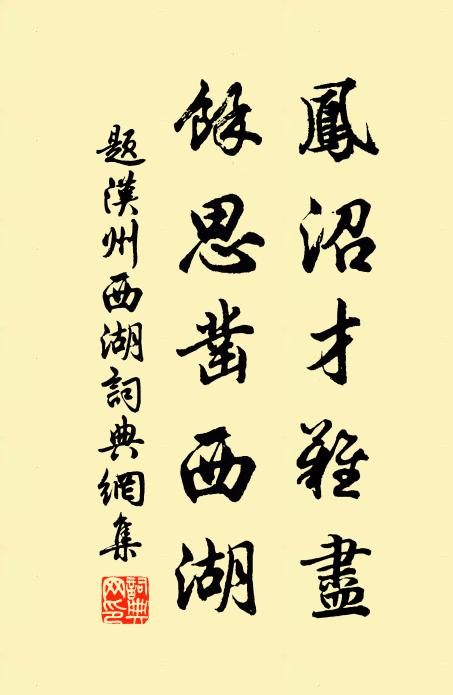 鳳沼才難盡
餘思鑿西湖
題漢州西湖詞典網集
詞典网印